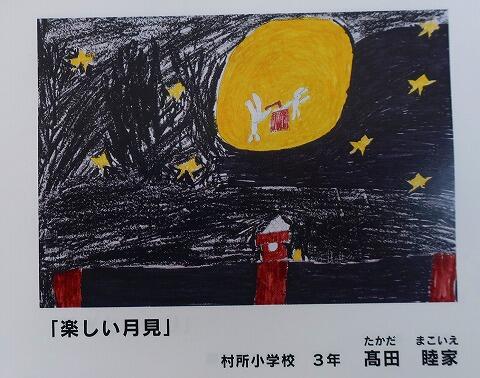 「楽しい月見」
たかだ　まこいえ
村所小学校　３年　髙田　睦家